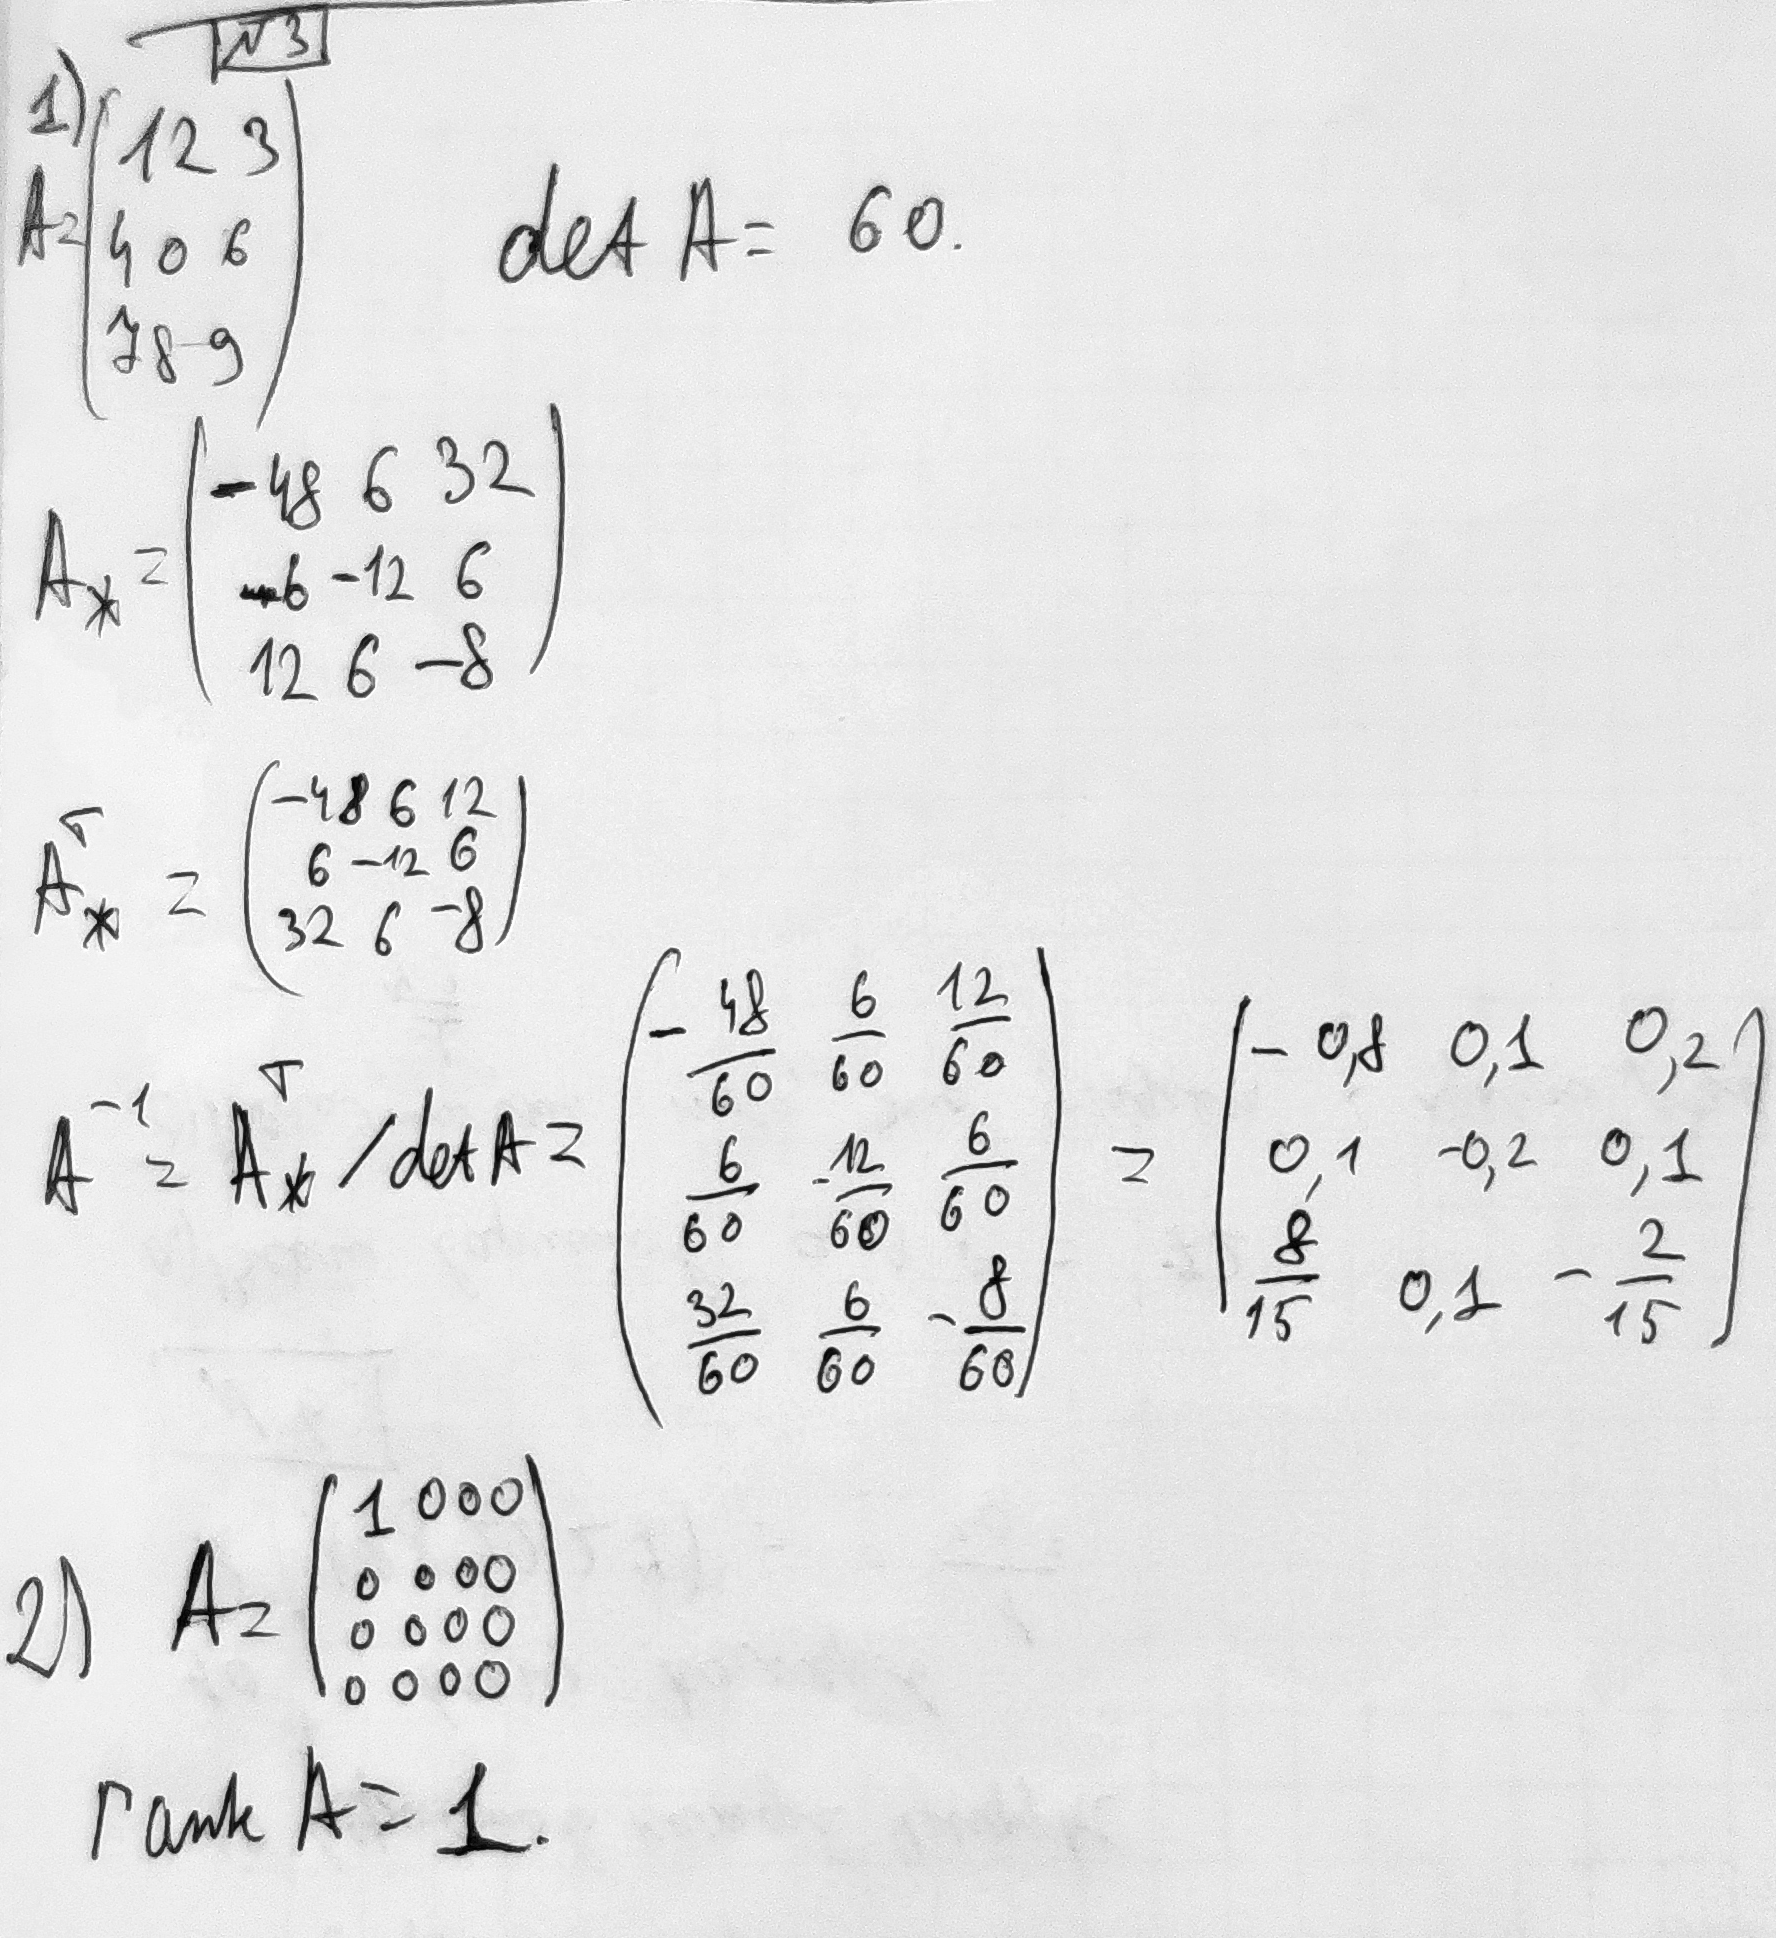 №3
1)
A = (1 2 3
4 0 6
7 8 9)
det A = 60.
A_* = (-48 6 32
6 -12 6
12 6 -8)
A_*^T = (-48 6 12
6 -12 6
32 6 -8)
A^{-1} = A_*^T / det A = (-48/60 6/60 12/60
6/60 -12/60 6/60
32/60 6/60 -8/60) = (-0,8 0,1 0,2
0,1 -0,2 0,1
8/15 0,1 -2/15)
2) A = (1 0 0 0
0 0 0 0
0 0 0 0
0 0 0 0)
rank A = 1.